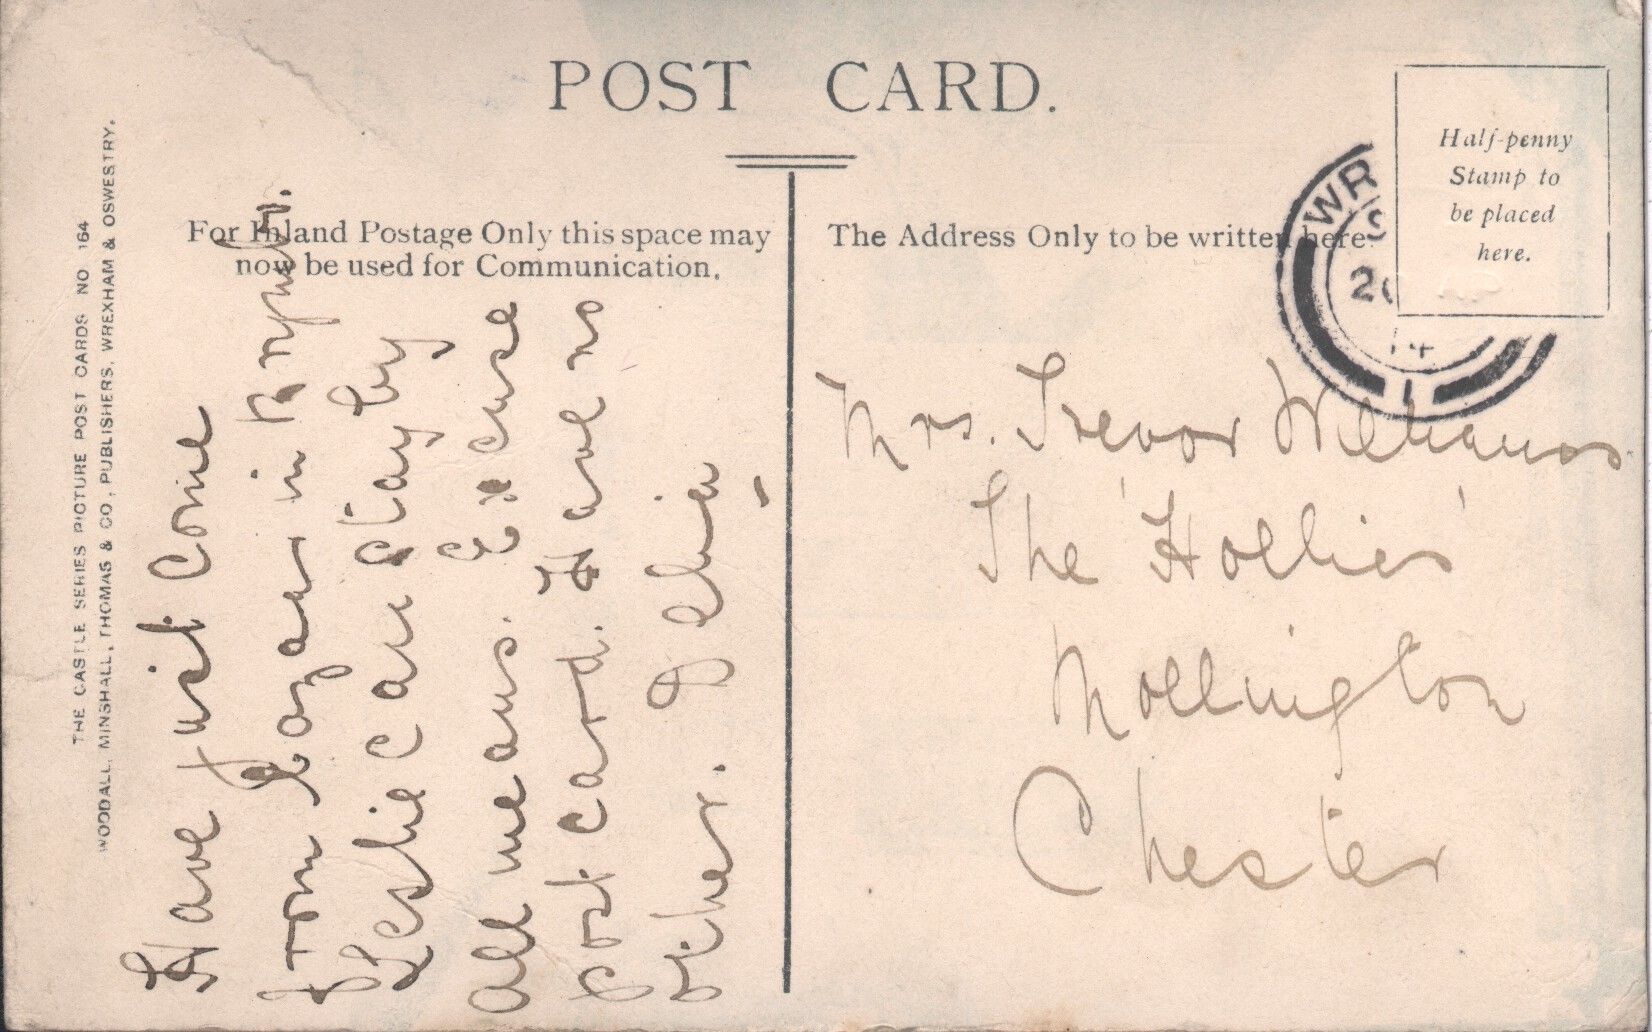 POST CARD.
For Inland Postage Only this space may
now be used for Communication.
The Address Only to be written here.
Half-penny
Stamp to
be placed
here.
WR
S
14
1
THE CASTLE SERIES PICTURE POST CARDS NO 164
WOODALL, MINSHALL, THOMAS & CO, PUBLISHERS, WREXHAM & OSWESTRY.
Have just come
from in
Leslie can stay by
all means. Excuse
post card. Have no
other.
Mrs. Trevor Williams
The 'Hollies'
Mollington
Chester